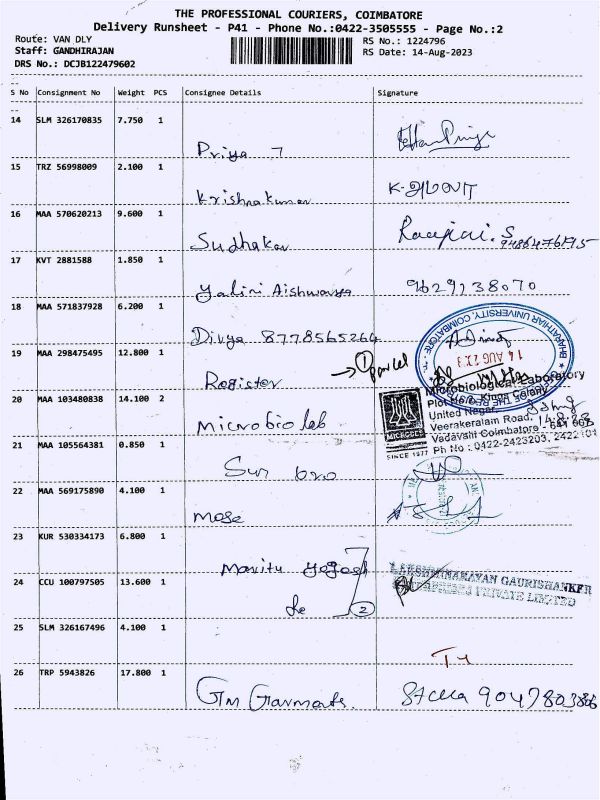 THE PROFESSIONAL COURIERS, COIMBATORE
Delivery Runsheet - P41 - Phone No.:0422-3505555 - Page No.:2
Route: VAN DLY
Staff: GANDHIRAJAN
DRS No.: DCJB122479602
RS No.: 1224796
RS Date: 14-Aug-2023
S No Consignment No Weight PCS Consignee Details Signature
14 SLM 326170835 7.750 1
Priya 7
15 TRZ 56998009 2.100 1
Krishnakumar K-அமலா
16 MAA 570620213 9.600 1
Sudhakar
17 KVT 2881588 1.850 1
Yalini Aishwarya 9629138070
18 MAA 571837928 6.200 1
Divya 8778565264
BHARATHIAR UNIVERSITY, COIMBATORE
14 AUG 2023
19 MAA 298475495 12.800 1
Register → 1 parcel
20 MAA 103480838 14.100 2
Microbio lab
Microbiological Laboratory
Kings Colony
United Nagar,
Veerakeralam Road,
Vadavalli Coimbatore - 641
Ph No : 0422-2423203,
MICROLAB
SINCE 1977
21 MAA 105564381 0.850 1
Sun bro
22 MAA 569175890 4.100 1
mose
23 KUR 530334173 6.800 1
24 CCU 100797505 13.600 1
2
LAKSHMINARAYAN GAURISHANKER
ENTERPRISES PRIVATE LIMITED
25 SLM 326167496 4.100 1
26 TRP 5943826 17.800 1
GTM Garments. Stella 9047803866